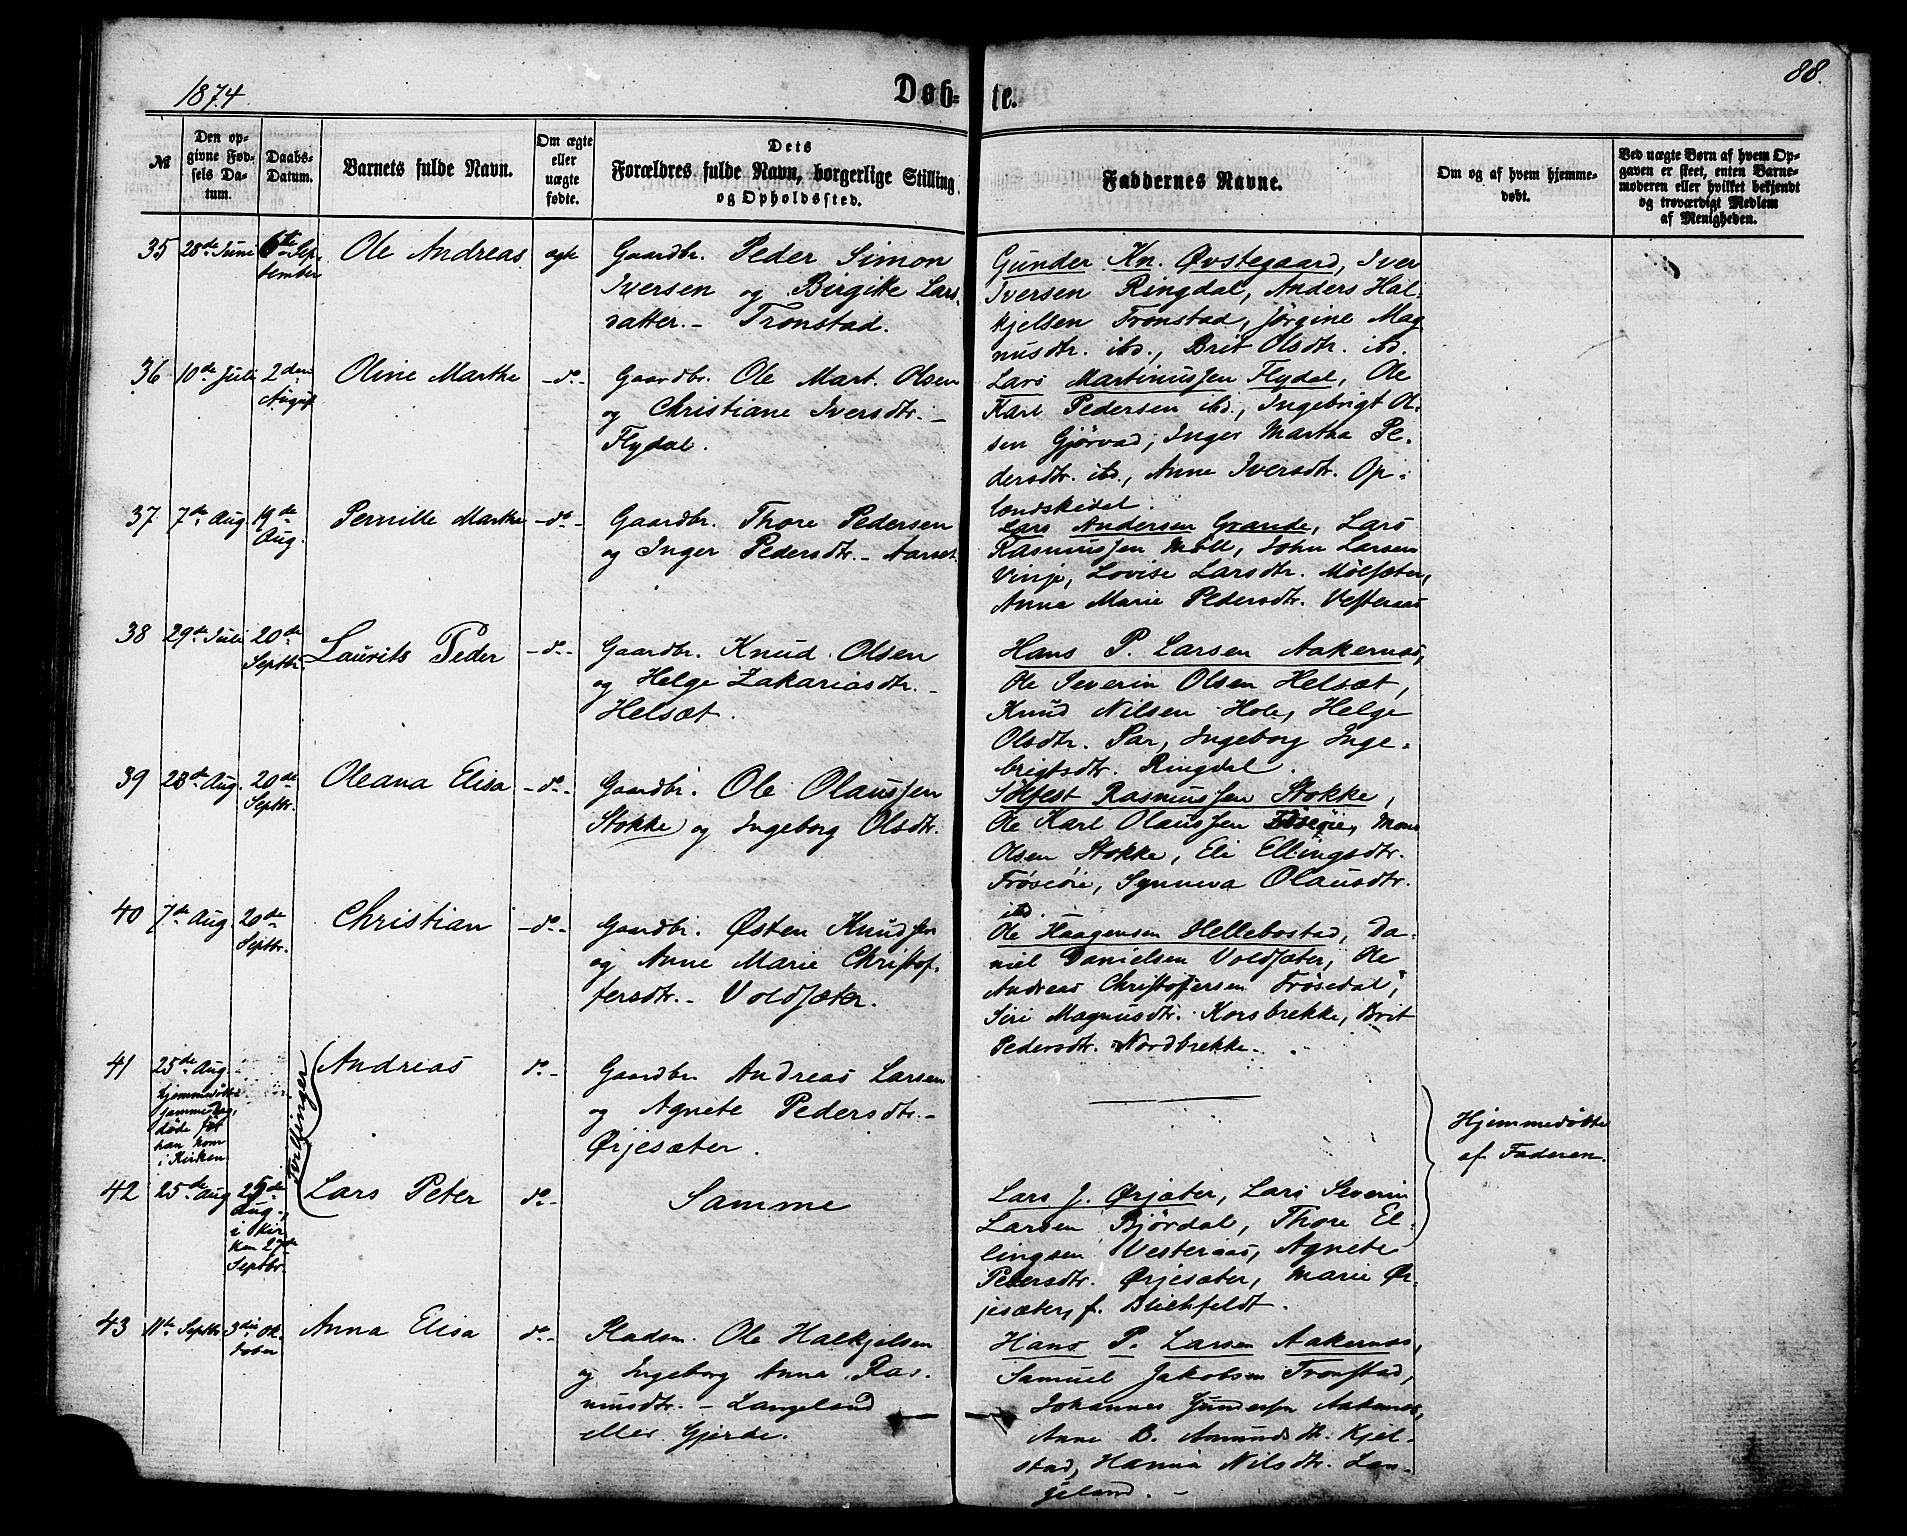 1874
Døb-
te.
88.
№
Den op-
givne Fød-
sels Da-
tum.
Daabs-
Datum.
Barnets fulde Navn.
Om ægte
eller
uægte
fødte.
Dets
Forældres fulde Navn, borgerlige Stilling
og Opholdssted.
Faddernes Navne.
Om og af hvem hjemme-
døbt.
Ved uægte Børn af hvem Op-
gaven er skeet, enten Barne-
moderen eller hvilket bekjendt
og troværdigt Medlem
af Menigheden.
35
28de Juni
6te Sep-
tember
Ole Andreas
ægte
Gaardbr. Peder Simon
Iversen og Birgitte Lars-
datter. - Tronstad.
Gunder Kn. Øvstegaard, Iver
Iversen Ringdal, Anders Hal-
kjelsen Tronstad, Jørgine Mag
nusdtr. ibd., Brit Olsdtr. ibd.
36
10de Juli
2den
August
Oline Marthe
-do-
Gaardbr. Ole Mart. Olsen
og Christiane Iversdtr. -
Flydal.
Lars Martinussen Flydal, Ole
Karl Pedersen ibd., Ingebrigt Ol-
sen Gjørvad, Inger Martha Pe-
dersdtr. ibd., Anne Iversdtr. Op-
londskedal.
37
7de Aug.
19de
Aug.
Pernille Marthe
-do-
Gaardbr. Thore Pedersen
og Inger Pedersdtr. - Aarset
Lars Andersen Grande, Lars
Rasmussen Møll, John Larsen
Vinje, Lovise Larsdtr. Mølsæter,
Anna Marie Pedersdtr. Vesteraas
38
29de Juli
20de
Septbr.
Laurits Peder
-do-
Gaardbr. Knud Olsen
og Helge Zakariasdtr. -
Helsæt.
Hans P. Larsen Aakernæs,
Ole Severin Olsen Helsæt,
Knud Nilsen Hole, Helge
Olsdtr. Par, Ingeborg Inge-
brigtsdtr. Ringdal.
39
28de Aug.
20de
Septbr.
Oleana Elisa
-do-
Gaardbr. Ole Olaussen
Stokke og Ingeborg Olsdtr.
Sølfest Rasmussen Stokke,
Ole Karl Olaussen Frøseøie, Mons
Olsen Stokke, Eli Ellingsdtr.
Frøseøie, Synneva Olausdtr.
ibd.
40
7de Aug.
20de
Septbr.
Christian
-do-
Gaardbr. Østen Knudsen
og Anne Marie Christof-
fersdtr. - Voldsæter.
Ole Haagensen Hellebostad, Da-
niel Danielsen Voldsæter, Ole
Andreas Christofersen Frøsedal,
Siri Magnusdtr. Korsbrekke, Brit
Pedersdtr. Nordbrekke.
41
25de Aug.
hjemmedøbt
samme Dag,
døde før
han kom
i Kirken.
Tvillinger
Andreas
do-
Gaardbr. Andreas Larsen
og Agnete Pedersdtr. -
Ørjesæter.
Hjemmedøbte
af Faderen.
42
25de Aug
25de
Aug.,
i Kir
ken 27de
Septbr.
Lars Peter
do-
Samme
Lars J. Ørjæter, Lars Severin
Larsen Bjørdal, Thore El-
lingsen Vesteraas, Agnete
Petersdtr. Ørjesæter, Marie Ør-
jesæter, f. Blichfeldt.
43
11te Septbr.
3die Ok-
tober
Anna Elisa
do-
Pladsm. Ole Halkjelsen
og Ingeborg Anna Ras-
musdtr. - Langeland
eller Gjerde.
Hans P. Larsen Aakernæs,
Samuel Jakobsen Tronstad,
Johannes Gundersen Aakernæs,
Anne B. Amundsdtr. Kjel-
stad, Hanna Nilsdtr. Lan-
geland. -